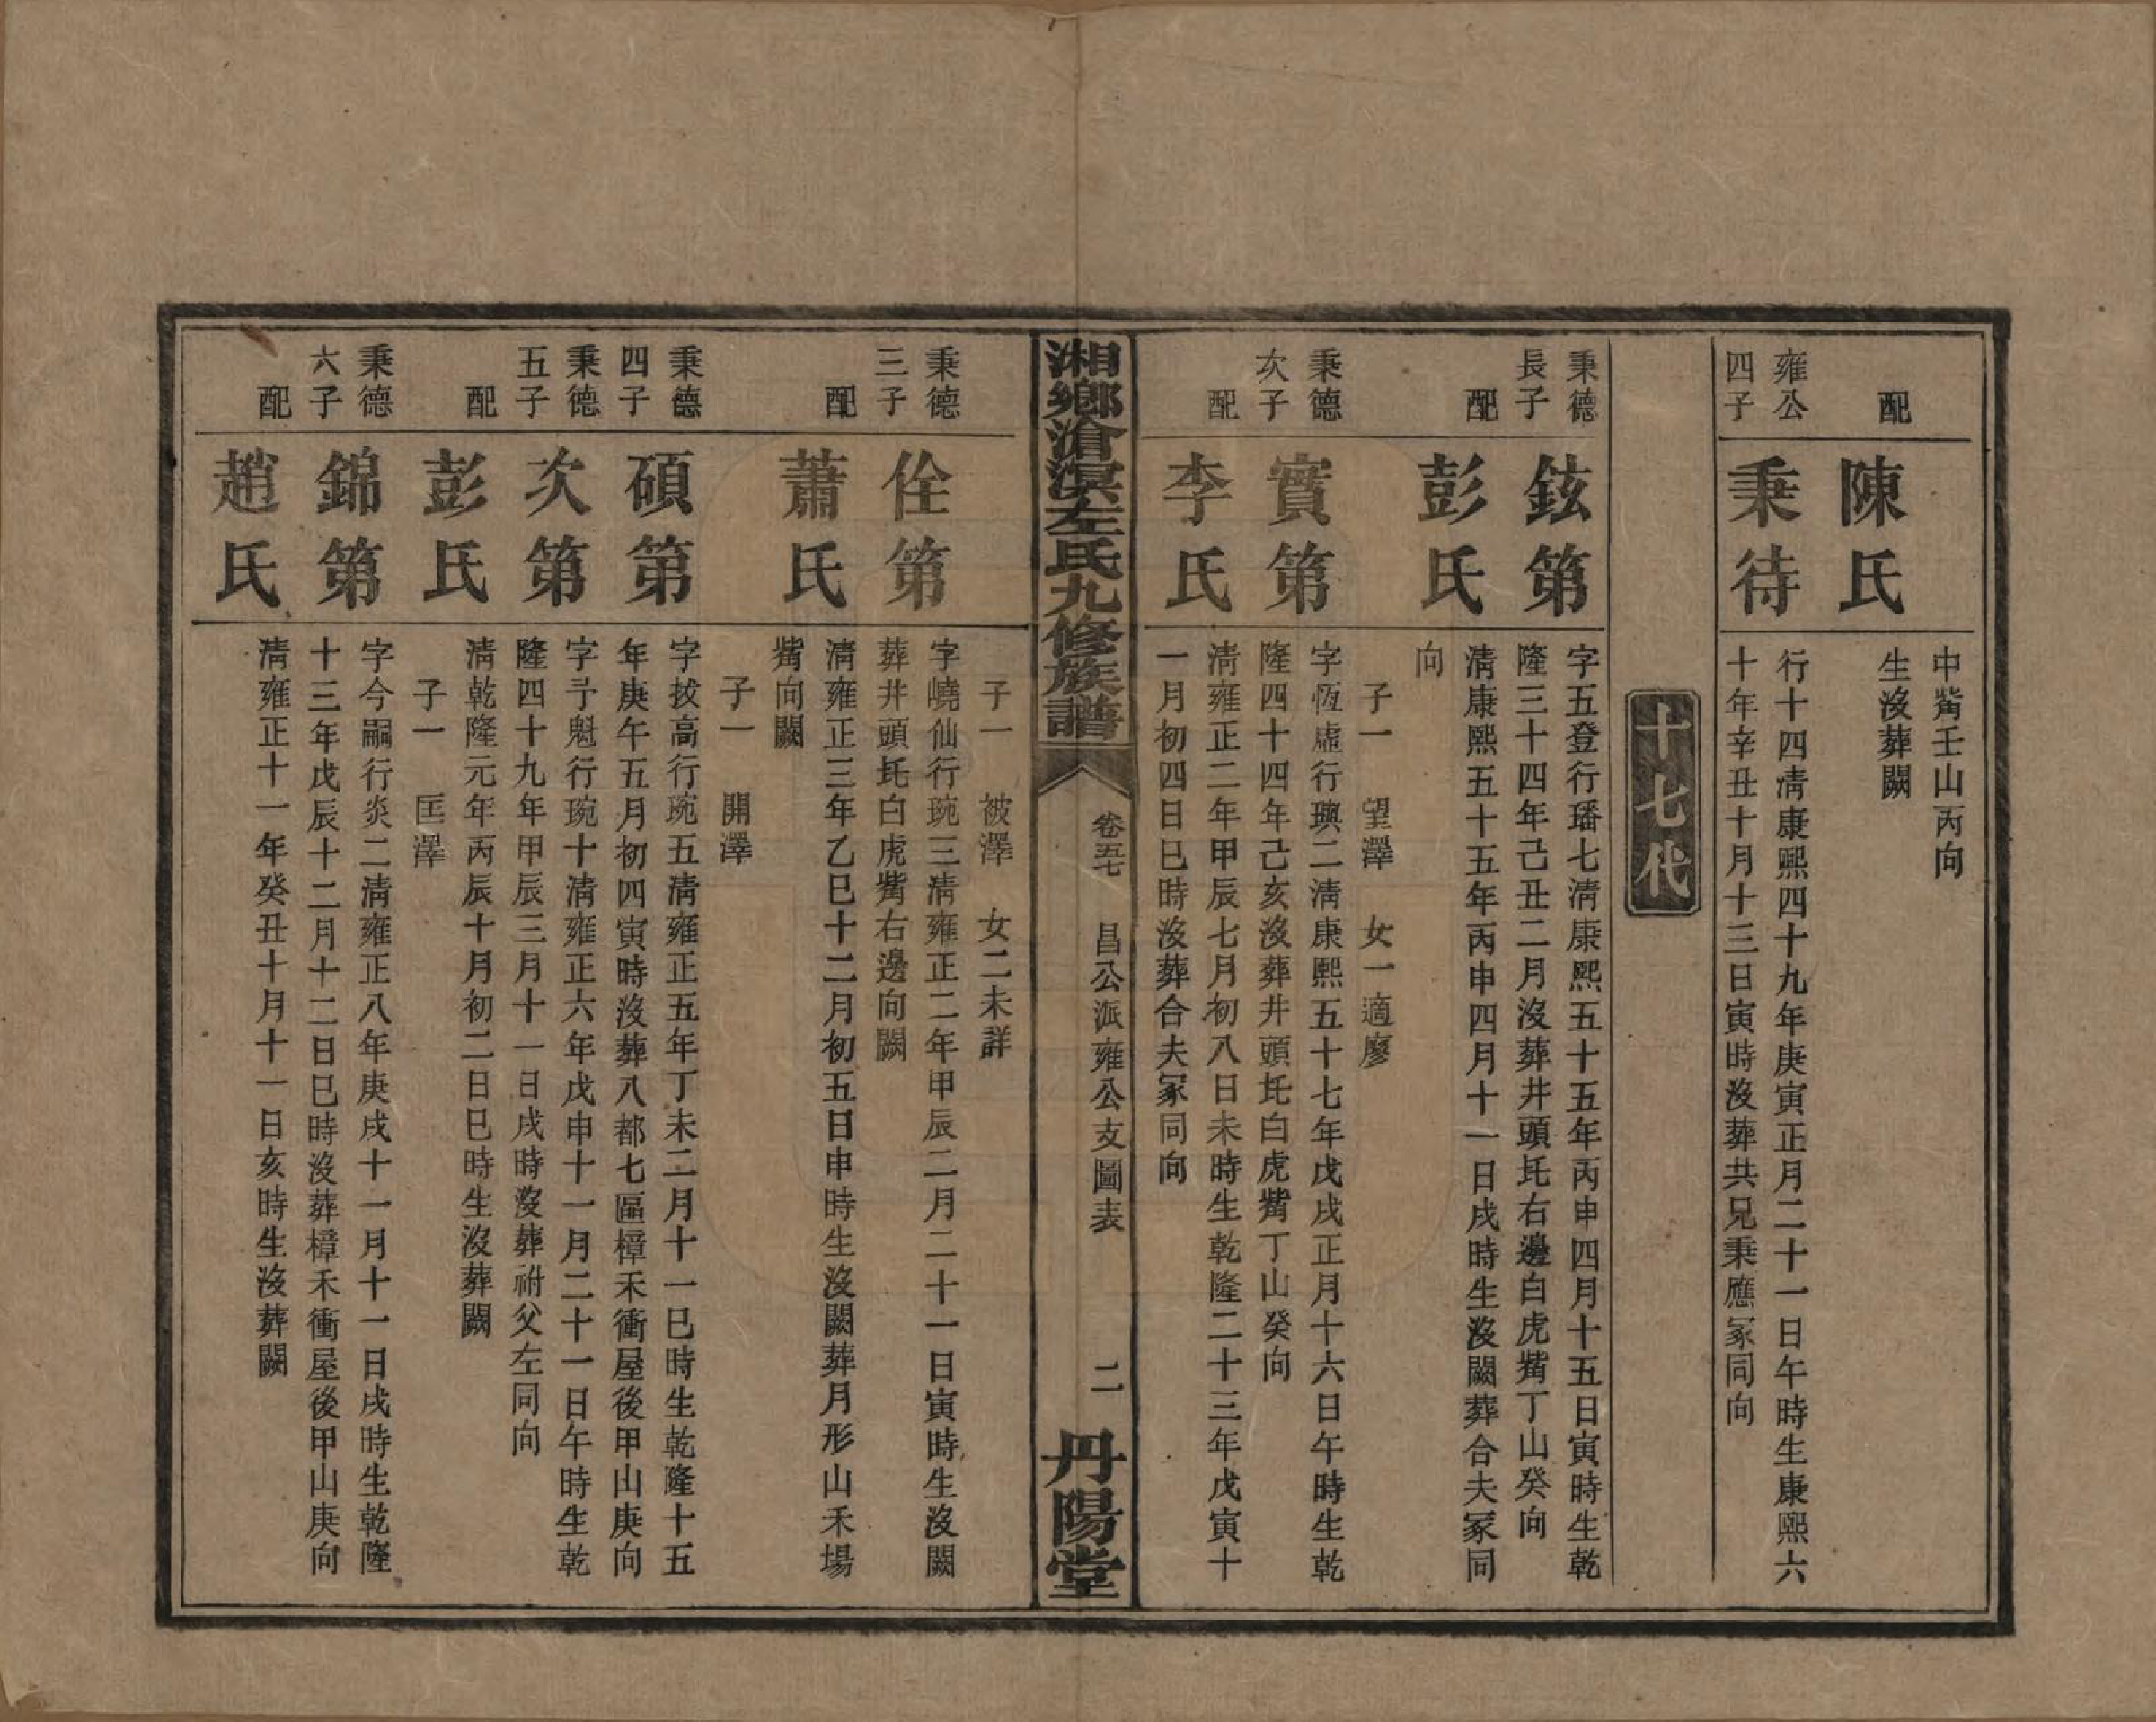 中觜壬山丙向
配
陳氏
生沒葬闕
雍公
四子
秉待
行十四淸康熙四十九年庚寅正月二十一日午時生康熙六
十年辛丑十月十三日寅時沒葬共兄秉應冢同向
十七代
秉德
長子
鉉第
字五登行璠七淸康熙五十五年丙申四月十五日寅時生乾
隆三十四年己丑二月沒葬井頭圫右邊白虎觜丁山癸向
配
彭氏
淸康熙五十五年丙申四月十一日戌時生沒闕葬合夫冢同
向
子一 望澤 女一適廖
秉德
次子
實第
字恆虛行璵二淸康熙五十七年戊戌正月十六日午時生乾
隆四十四年己亥沒葬井頭圫白虎觜丁山癸向
配
李氏
淸雍正二年甲辰七月初八日未時生乾隆二十三年戊寅十
一月初四日巳時沒葬合夫冢同向
湘鄉滄溟左氏九修族譜
卷五七 昌公派雍公支圖表 二
丹陽堂
子一 被澤 女二未詳
秉德
三子
佺第
字嶢仙行琬三淸雍正二年甲辰二月二十一日寅時生沒闕
葬井頭圫白虎觜右邊向闕
配
蕭氏
淸雍正三年乙巳十二月初五日申時生沒闕葬月形山禾場
觜向闕
子一 開澤
秉德
四子
碩第
字拔高行琬五淸雍正五年丁未二月十一巳時生乾隆十五
年庚午五月初四寅時沒葬八都七區樟禾衝屋後甲山庚向
秉德
五子
次第
字予魁行琬十淸雍正六年戊申十一月二十一日午時生乾
隆四十九年甲辰三月十一日戌時沒葬祔父左同向
配
彭氏
淸乾隆元年丙辰十月初二日巳時生沒葬闕
子一 匡澤
秉德
六子
錦第
字今嗣行炎二淸雍正八年庚戌十一月十一日戌時生乾隆
十三年戊辰十二月十二日巳時沒葬樟禾衝屋後甲山庚向
配
趙氏
淸雍正十一年癸丑十月十一日亥時生沒葬闕